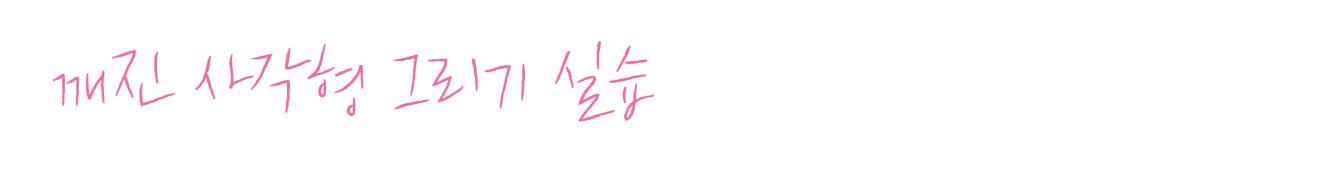 깨진 사각형 그리기 실습